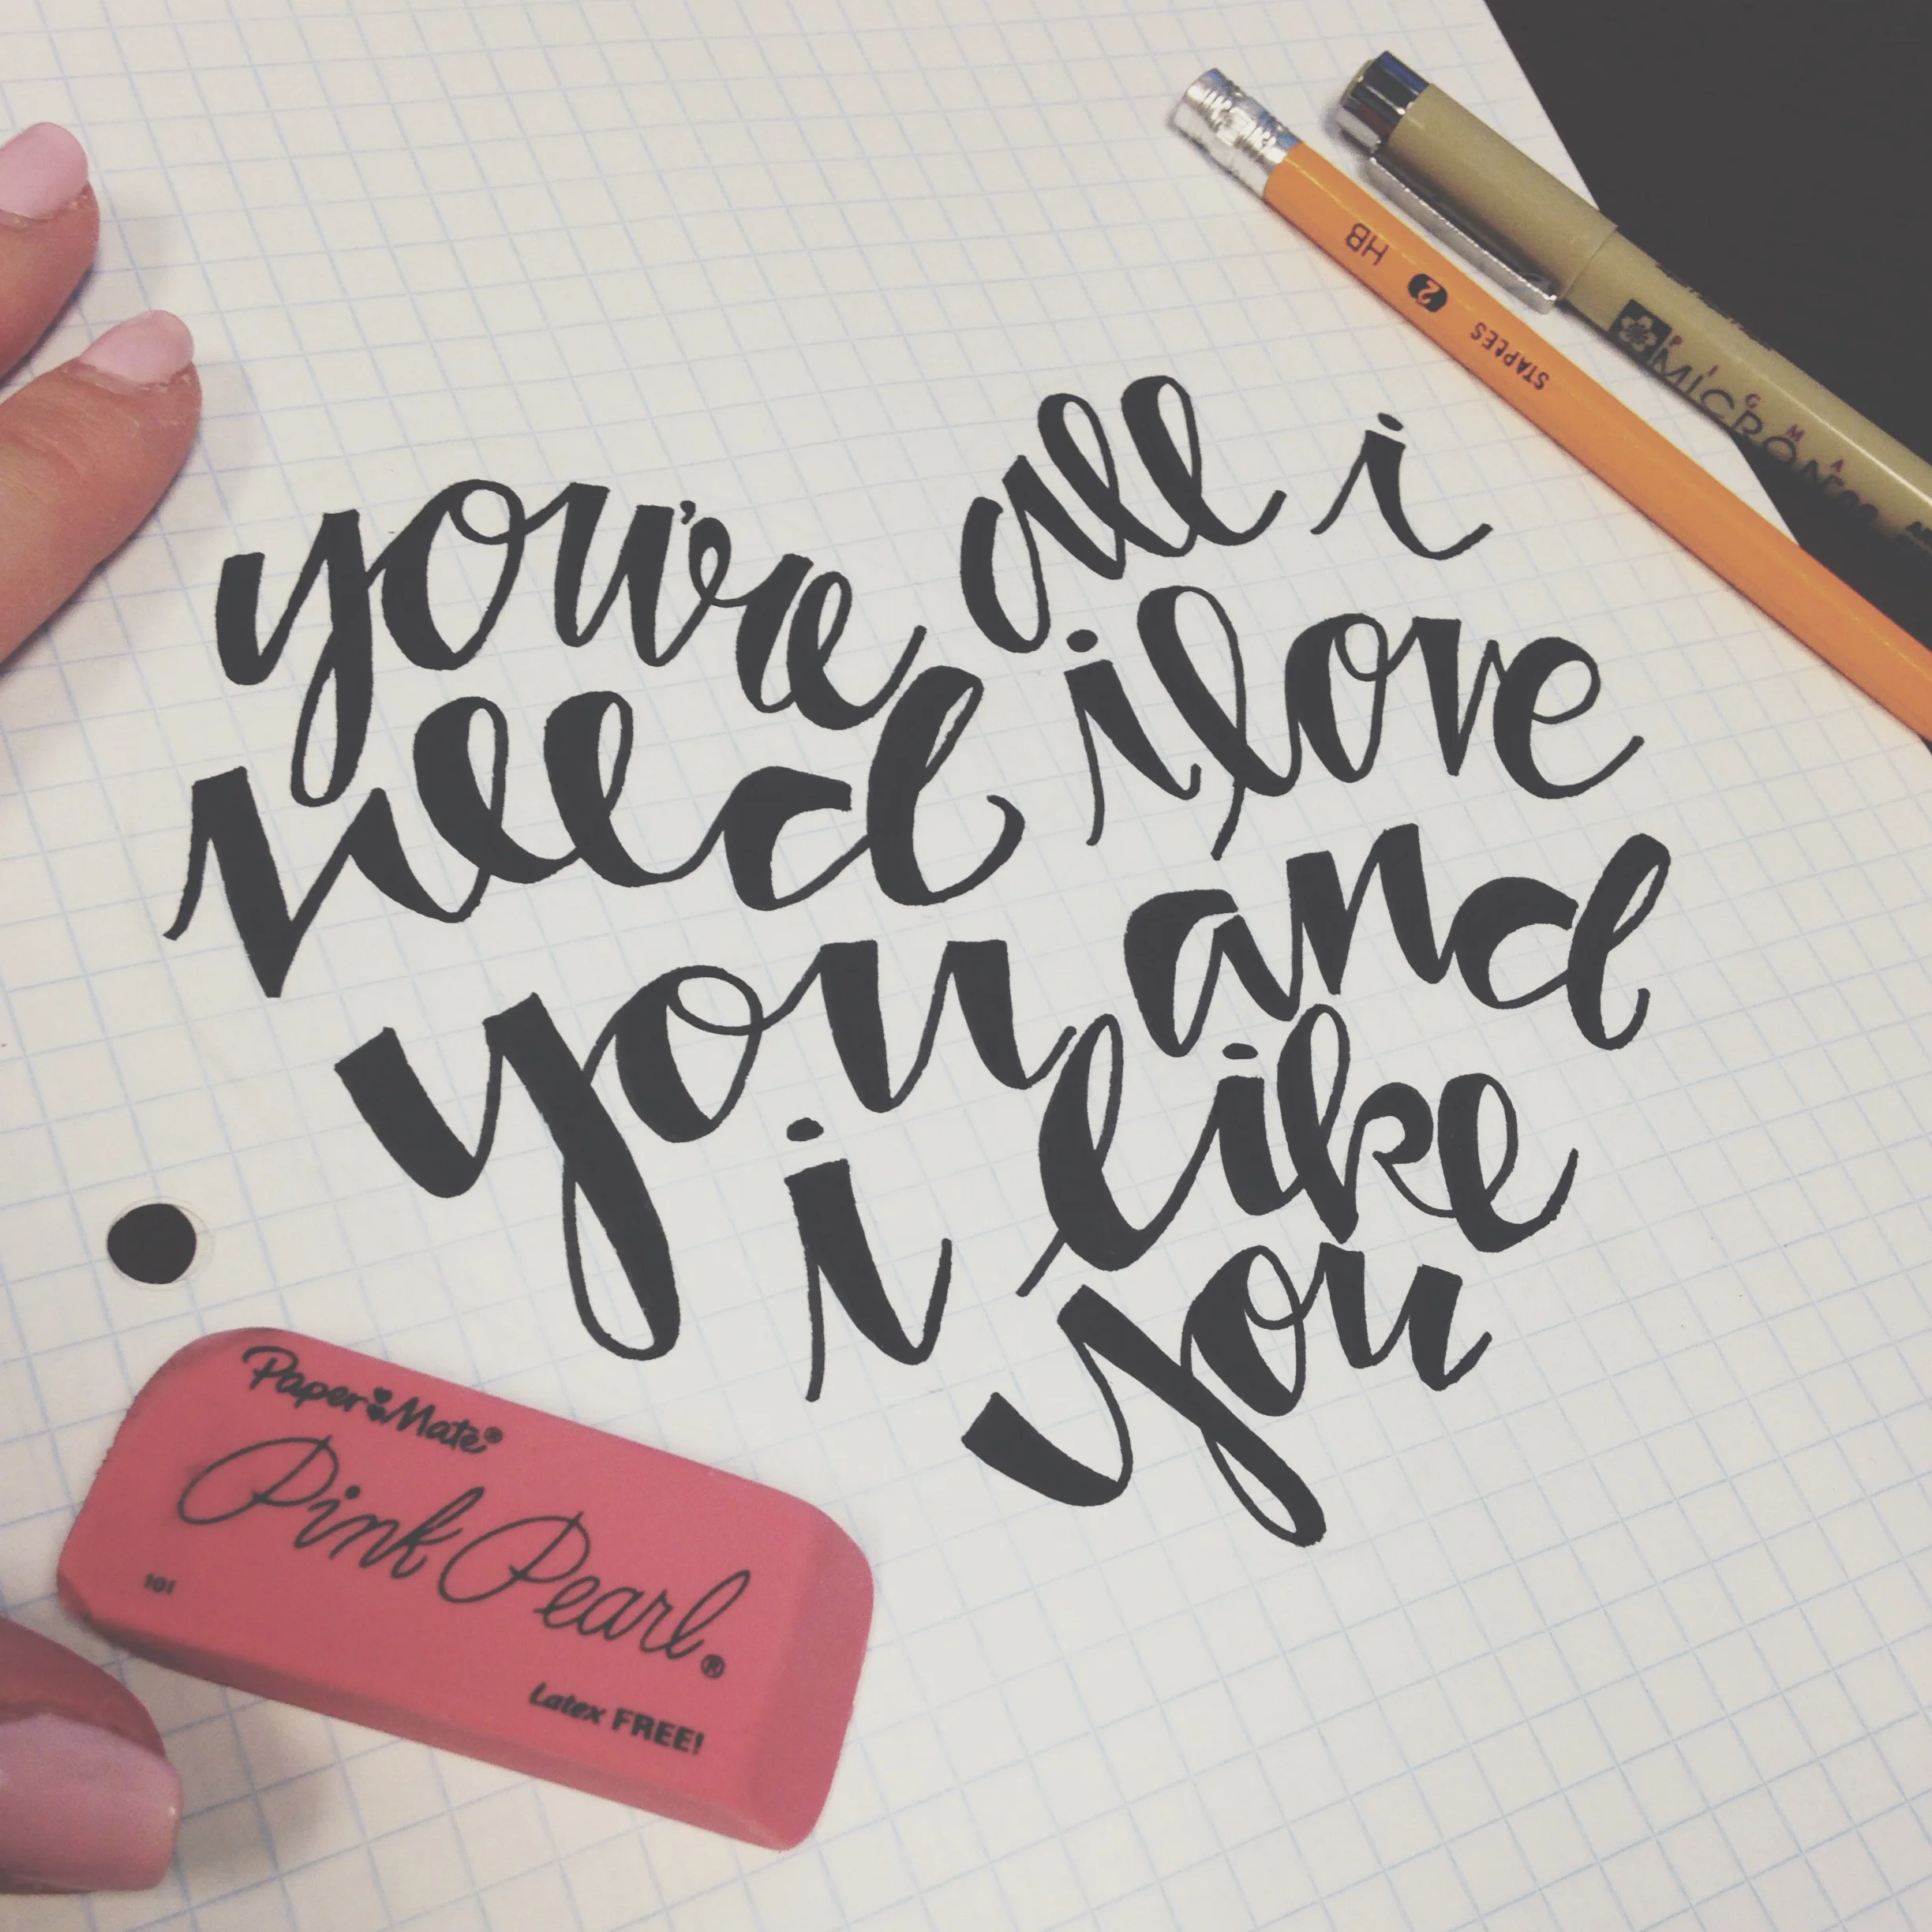 you're all i
need i love
you and
i like
you
HB 2 STAPLES
PIGMA
MICRON
Paper Mate®
Pink Pearl®
101
Latex FREE!